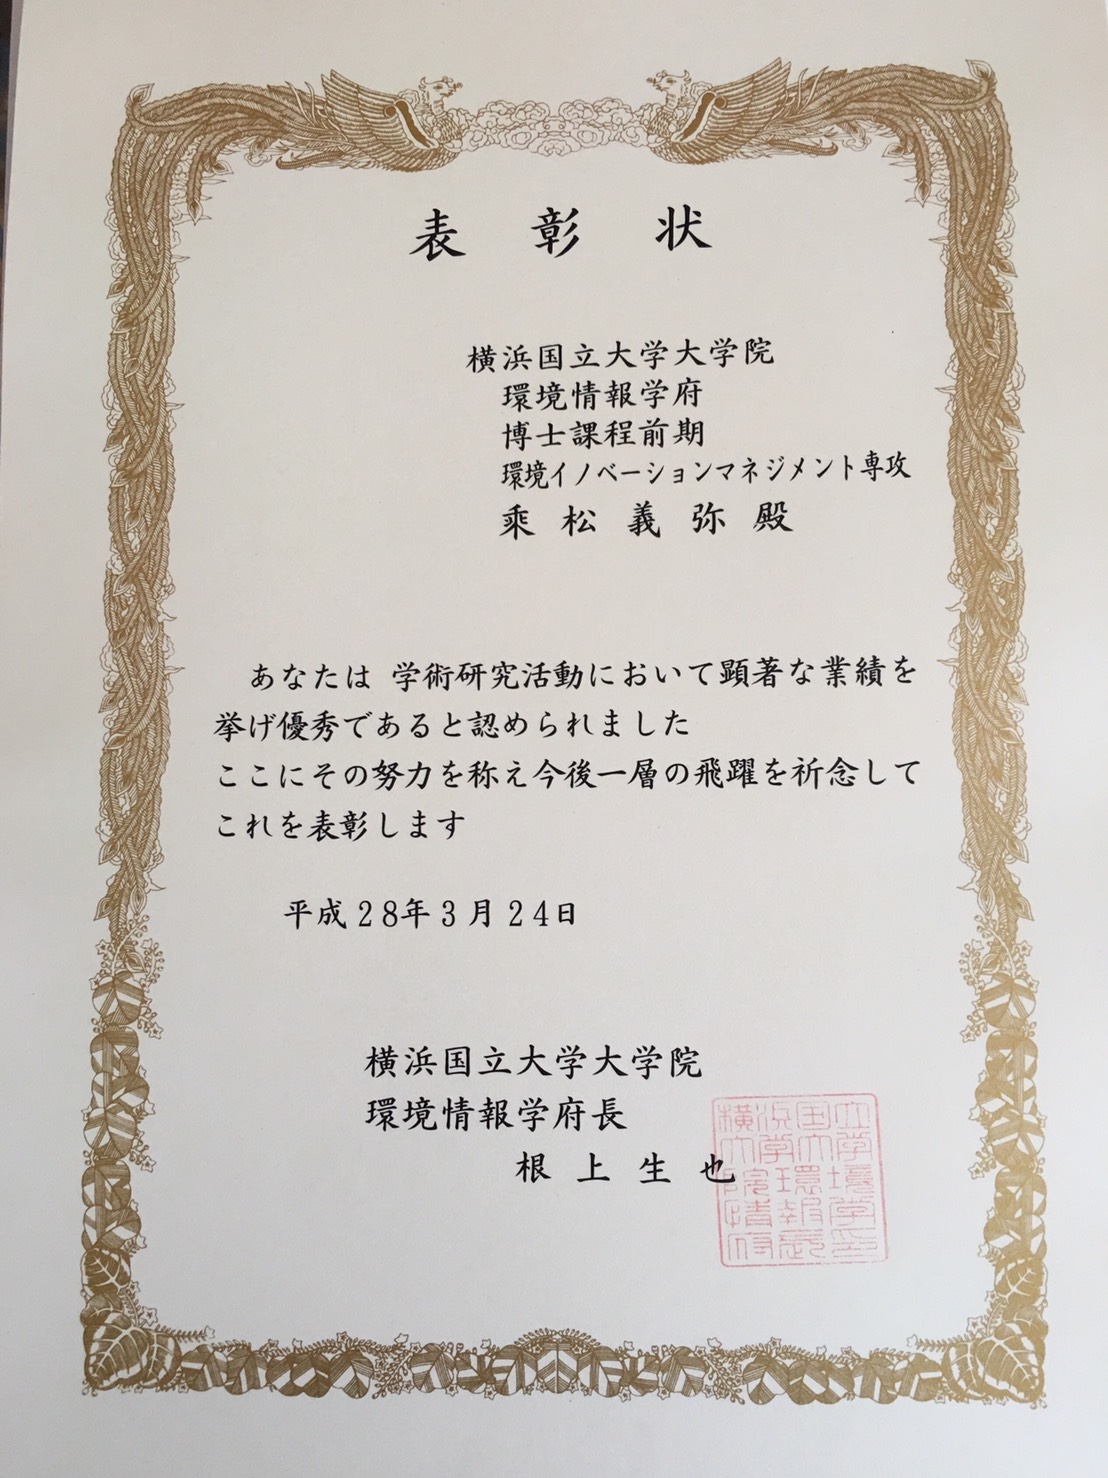 表彰状
横浜国立大学大学院
環境情報学府
博士課程前期
環境イノベーションマネジメント専攻
乗松義弥殿
あなたは 学術研究活動において顕著な業績を
挙げ優秀であると認められました
ここにその努力を称え今後一層の飛躍を祈念して
これを表彰します
平成28年3月24日
横浜国立大学大学院
環境情報学府長
根上生也
横浜国立
大学大学
院環境
情報学
府長印